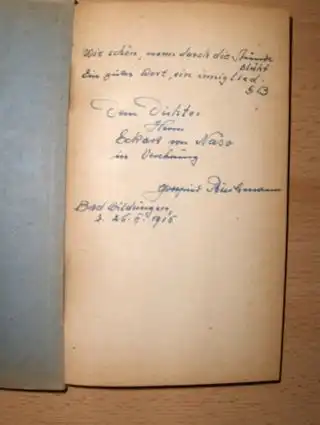 Wie schön, wenn durch die Stunde
blüht
Ein gutes Wort, ein innig Lied.
Dem Dichter
Herrn
Eckart von Naso
in Verehrung
Bad Wildungen,